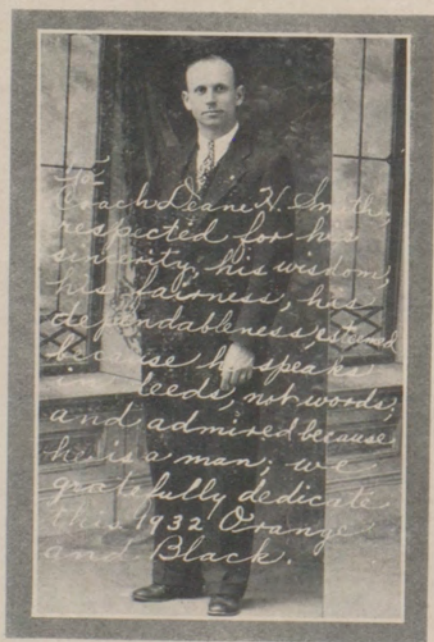 To
Coach Deane H. Smith,
respected for his
sincerity, his wisdom,
his fairness, his
dependableness, esteemed
because he speaks
in deeds, not words;
and admired because
he is a man; we
gratefully dedicate
this 1932 Orange
and Black.